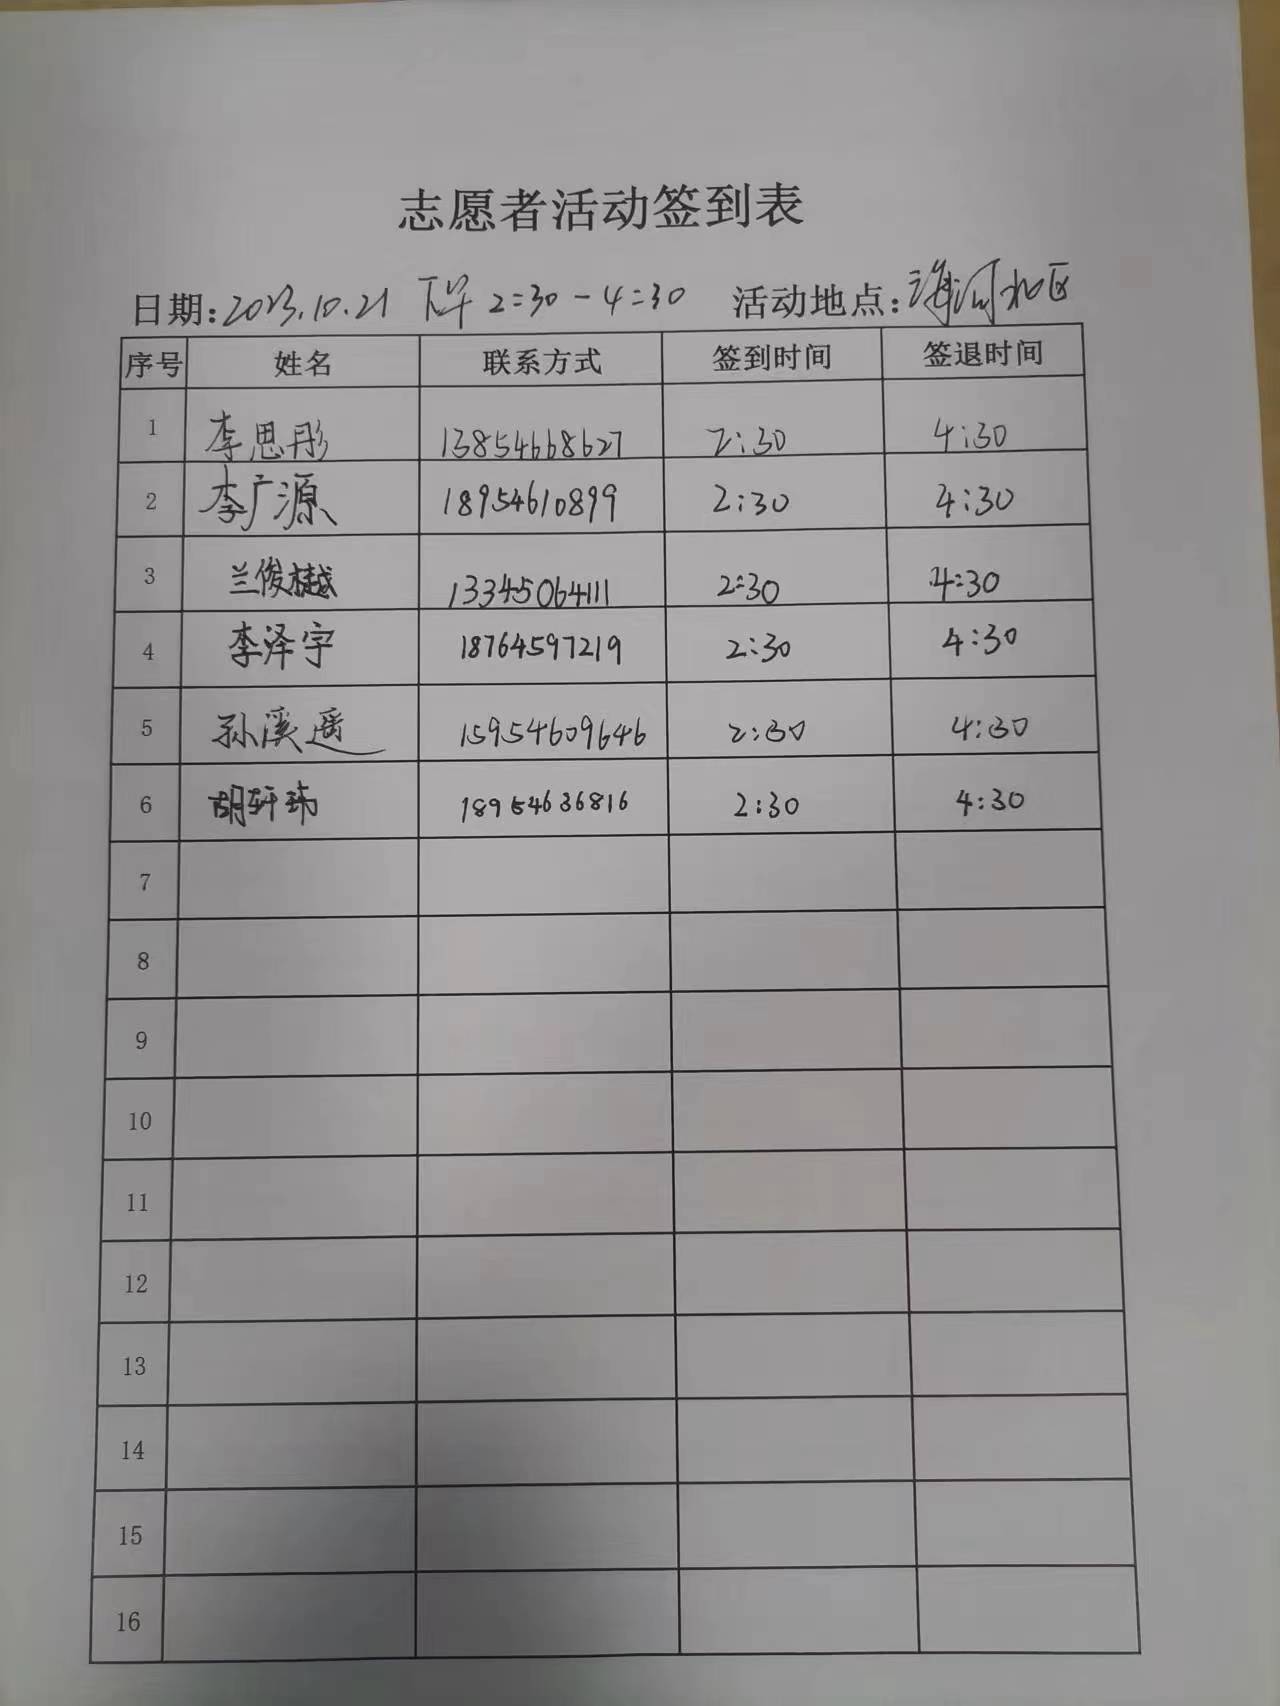 志愿者活动签到表
日期:2023.10.21 下午 2:30-4:30 活动地点:海河社区
序号 姓名 联系方式 签到时间 签退时间
1 李思彤 13854668627 2:30 4:30
2 李广源 18954610899 2:30 4:30
3 兰俊樾 13345064111 2:30 4:30
4 李泽宇 18764597219 2:30 4:30
5 孙溪遥 15954609646 2:30 4:30
6 胡轩玮 18954636816 2:30 4:30
7
8
9
10
11
12
13
14
15
16